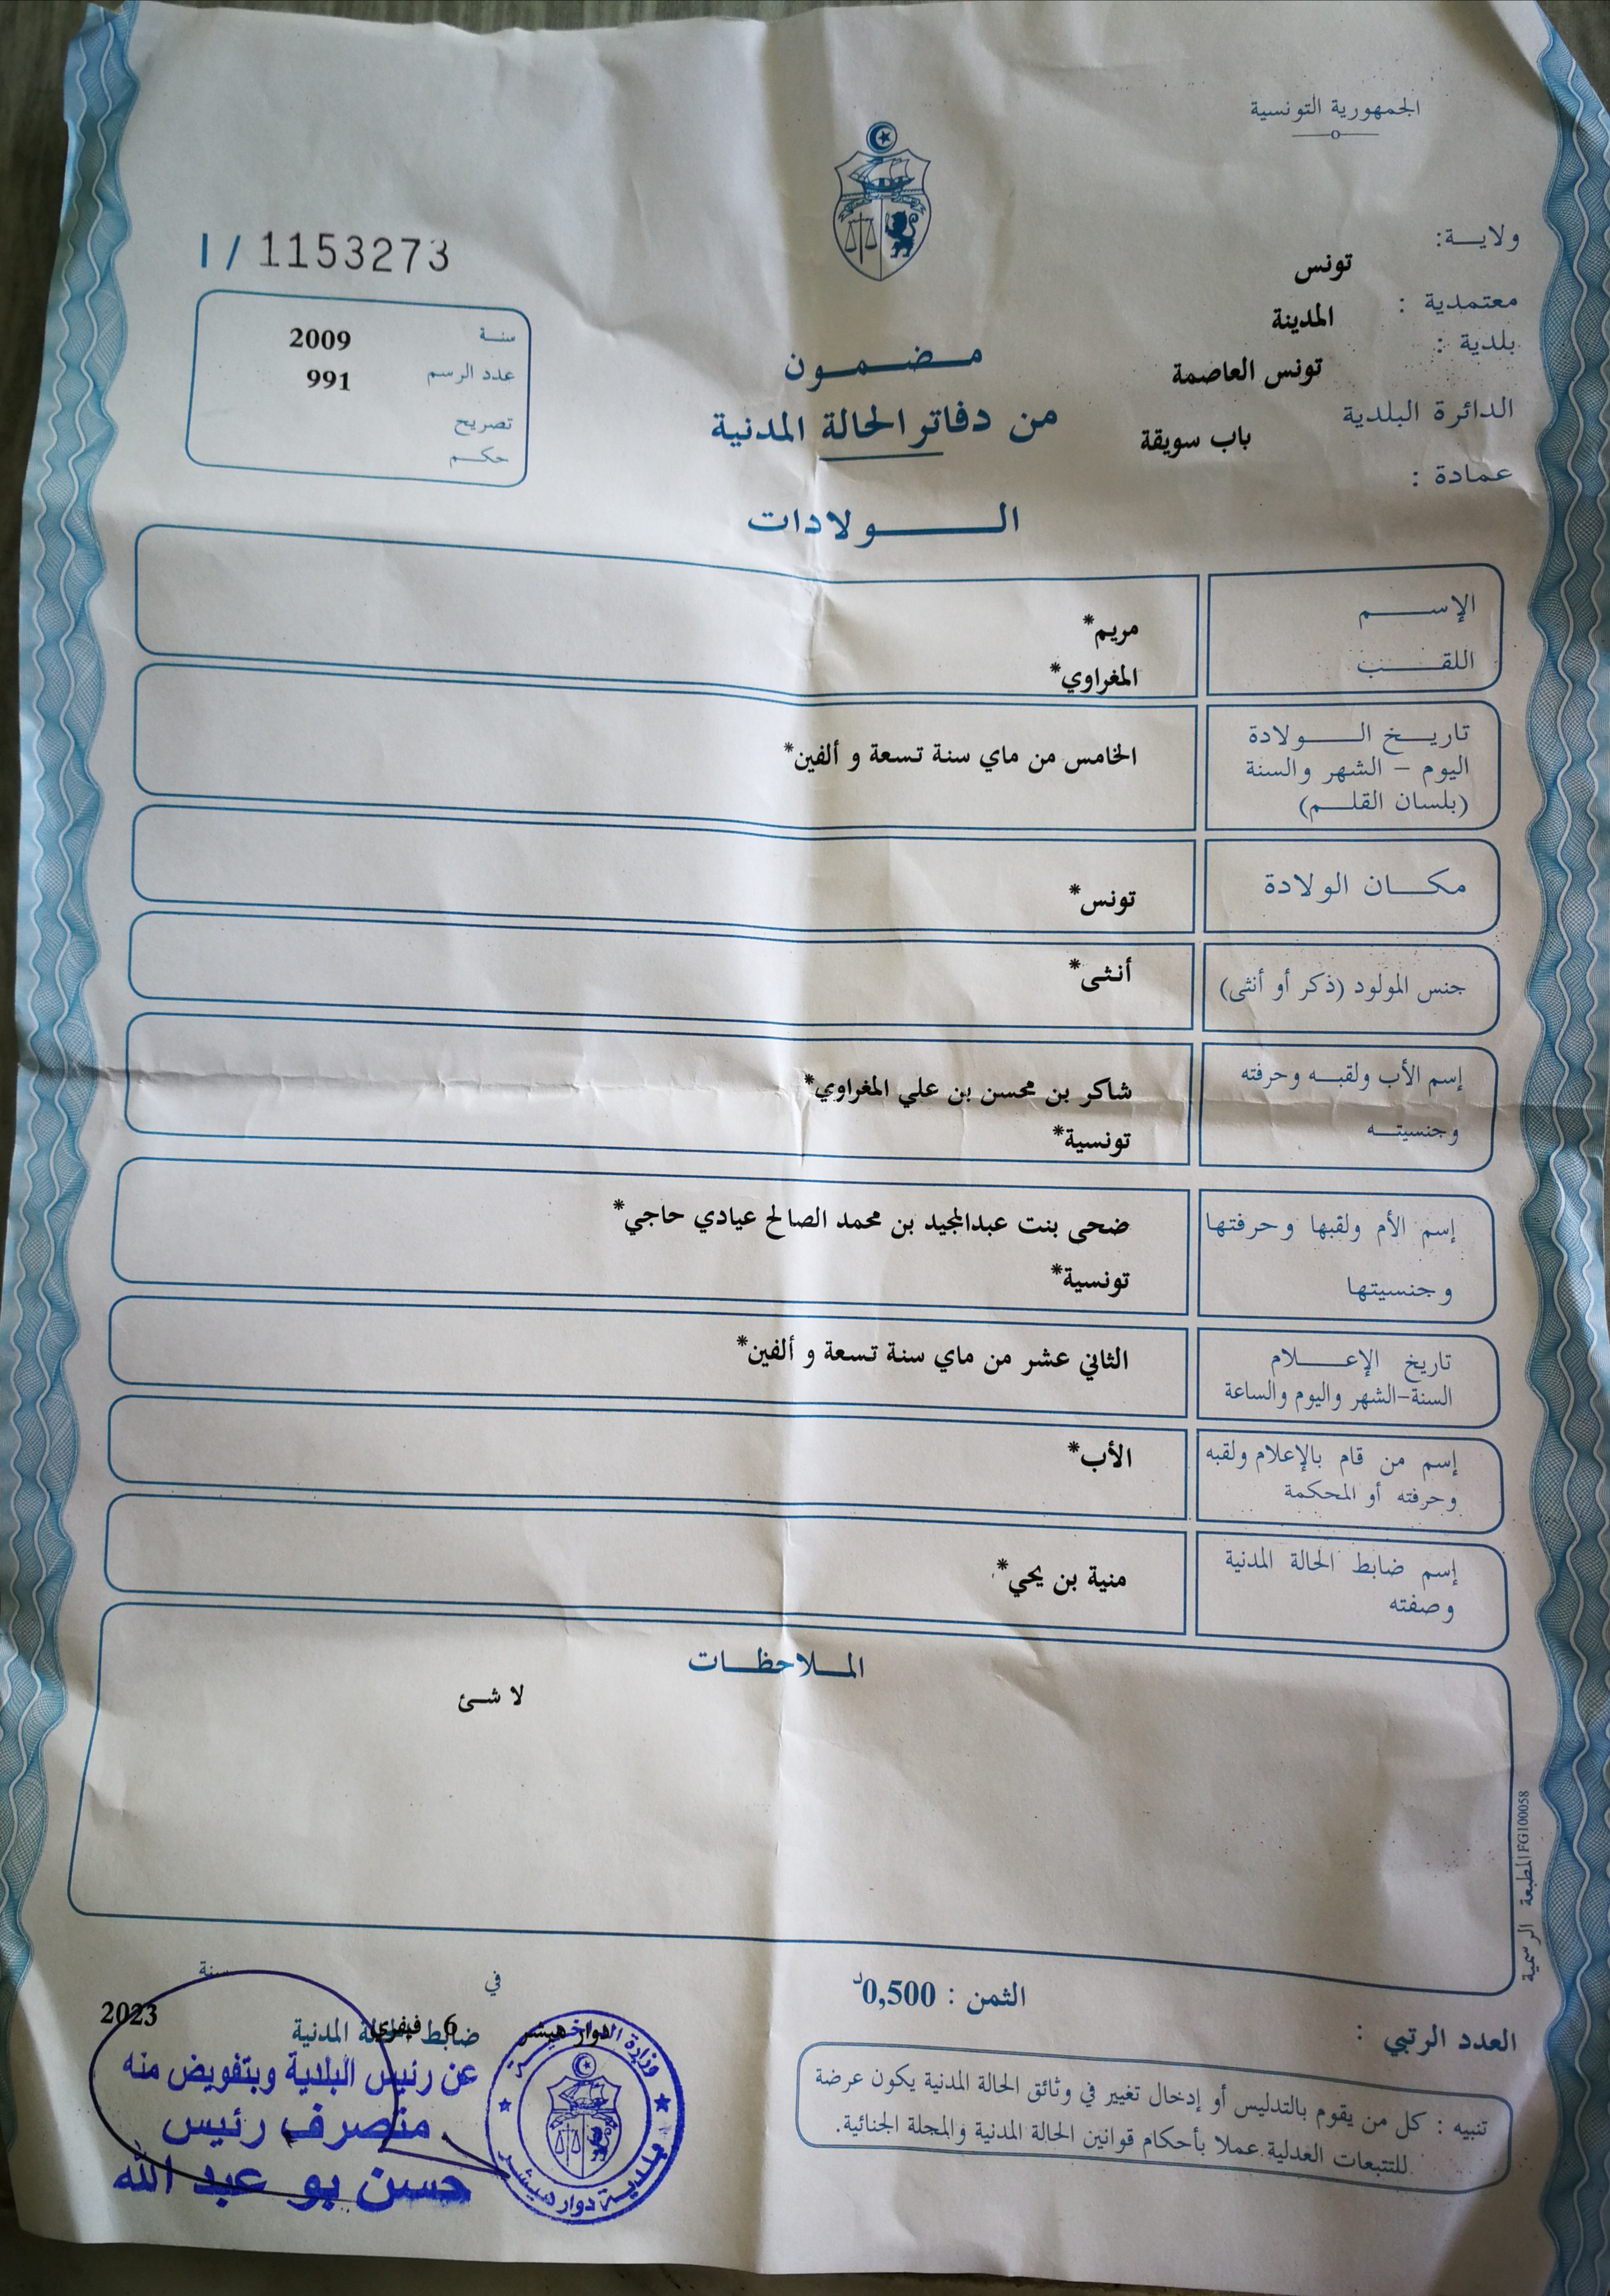 الجمهورية التونسية
ولايــة:
تونس
معتمدية :
المدينة
بلدية :
تونس العاصمة
الدائرة البلدية
باب سويقة
عمادة :
I / 1153273
سنـة 2009
عدد الرسم 991
تصريح
حكـم
مـضـمـون
من دفاتر الحالة المدنية
الـولادات
الإسـم مريم*
اللقـب المغراوي*
تاريـخ الـولادة
اليوم – الشهر والسنة
(بلسان القلـم)
الخامس من ماي سنة تسعة و ألفين*
مكـان الولادة
تونس*
جنس المولود (ذكر أو أنثى)
أنثى*
إسم الأب ولقبـه وحرفته
وجنسيتـه
شاكر بن محسن بن علي المغراوي*
تونسية*
إسم الأم ولقبها وحرفتها
وجنسيتها
ضحى بنت عبدالمجيد بن محمد الصالح عيادي حاجي*
تونسية*
تاريخ الإعـلام
السنة-الشهر واليوم والساعة
الثاني عشر من ماي سنة تسعة و ألفين*
إسم من قام بالإعلام ولقبه
وحرفته أو المحكمة
الأب*
إسم ضابط الحالة المدنية
وصفته
منية بن يحي*
المـلاحظـات
لا شئ
المطبعة الرسمية FG100058
الثمن : 0,500د
العدد الرتبي :
تنبيه : كل من يقوم بالتدليس أو إدخال تغيير في وثائق الحالة المدنية يكون عرضة
للتتبعات العدلية عملا بأحكام قوانين الحالة المدنية والمجلة الجنائية.
دوار هيشر
في
6 فيفري
سنة
2023
ضابط الحالة المدنية
عن رئيس البلدية وبتفويض منه
متصرف رئيس
حسن بو عبد الله
وزارة الداخلية
بلدية دوار هيشر